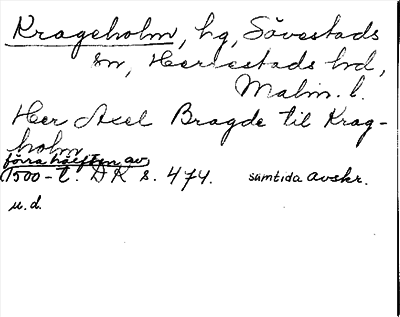 Krageholm, hg, Sövestads
sn, Herrestads hrd,
Malm. l.
Her Axel Bragde til Krag-
holm
förra hälften av
1500-t. DK s. 474. samtida avskr.
u.d.